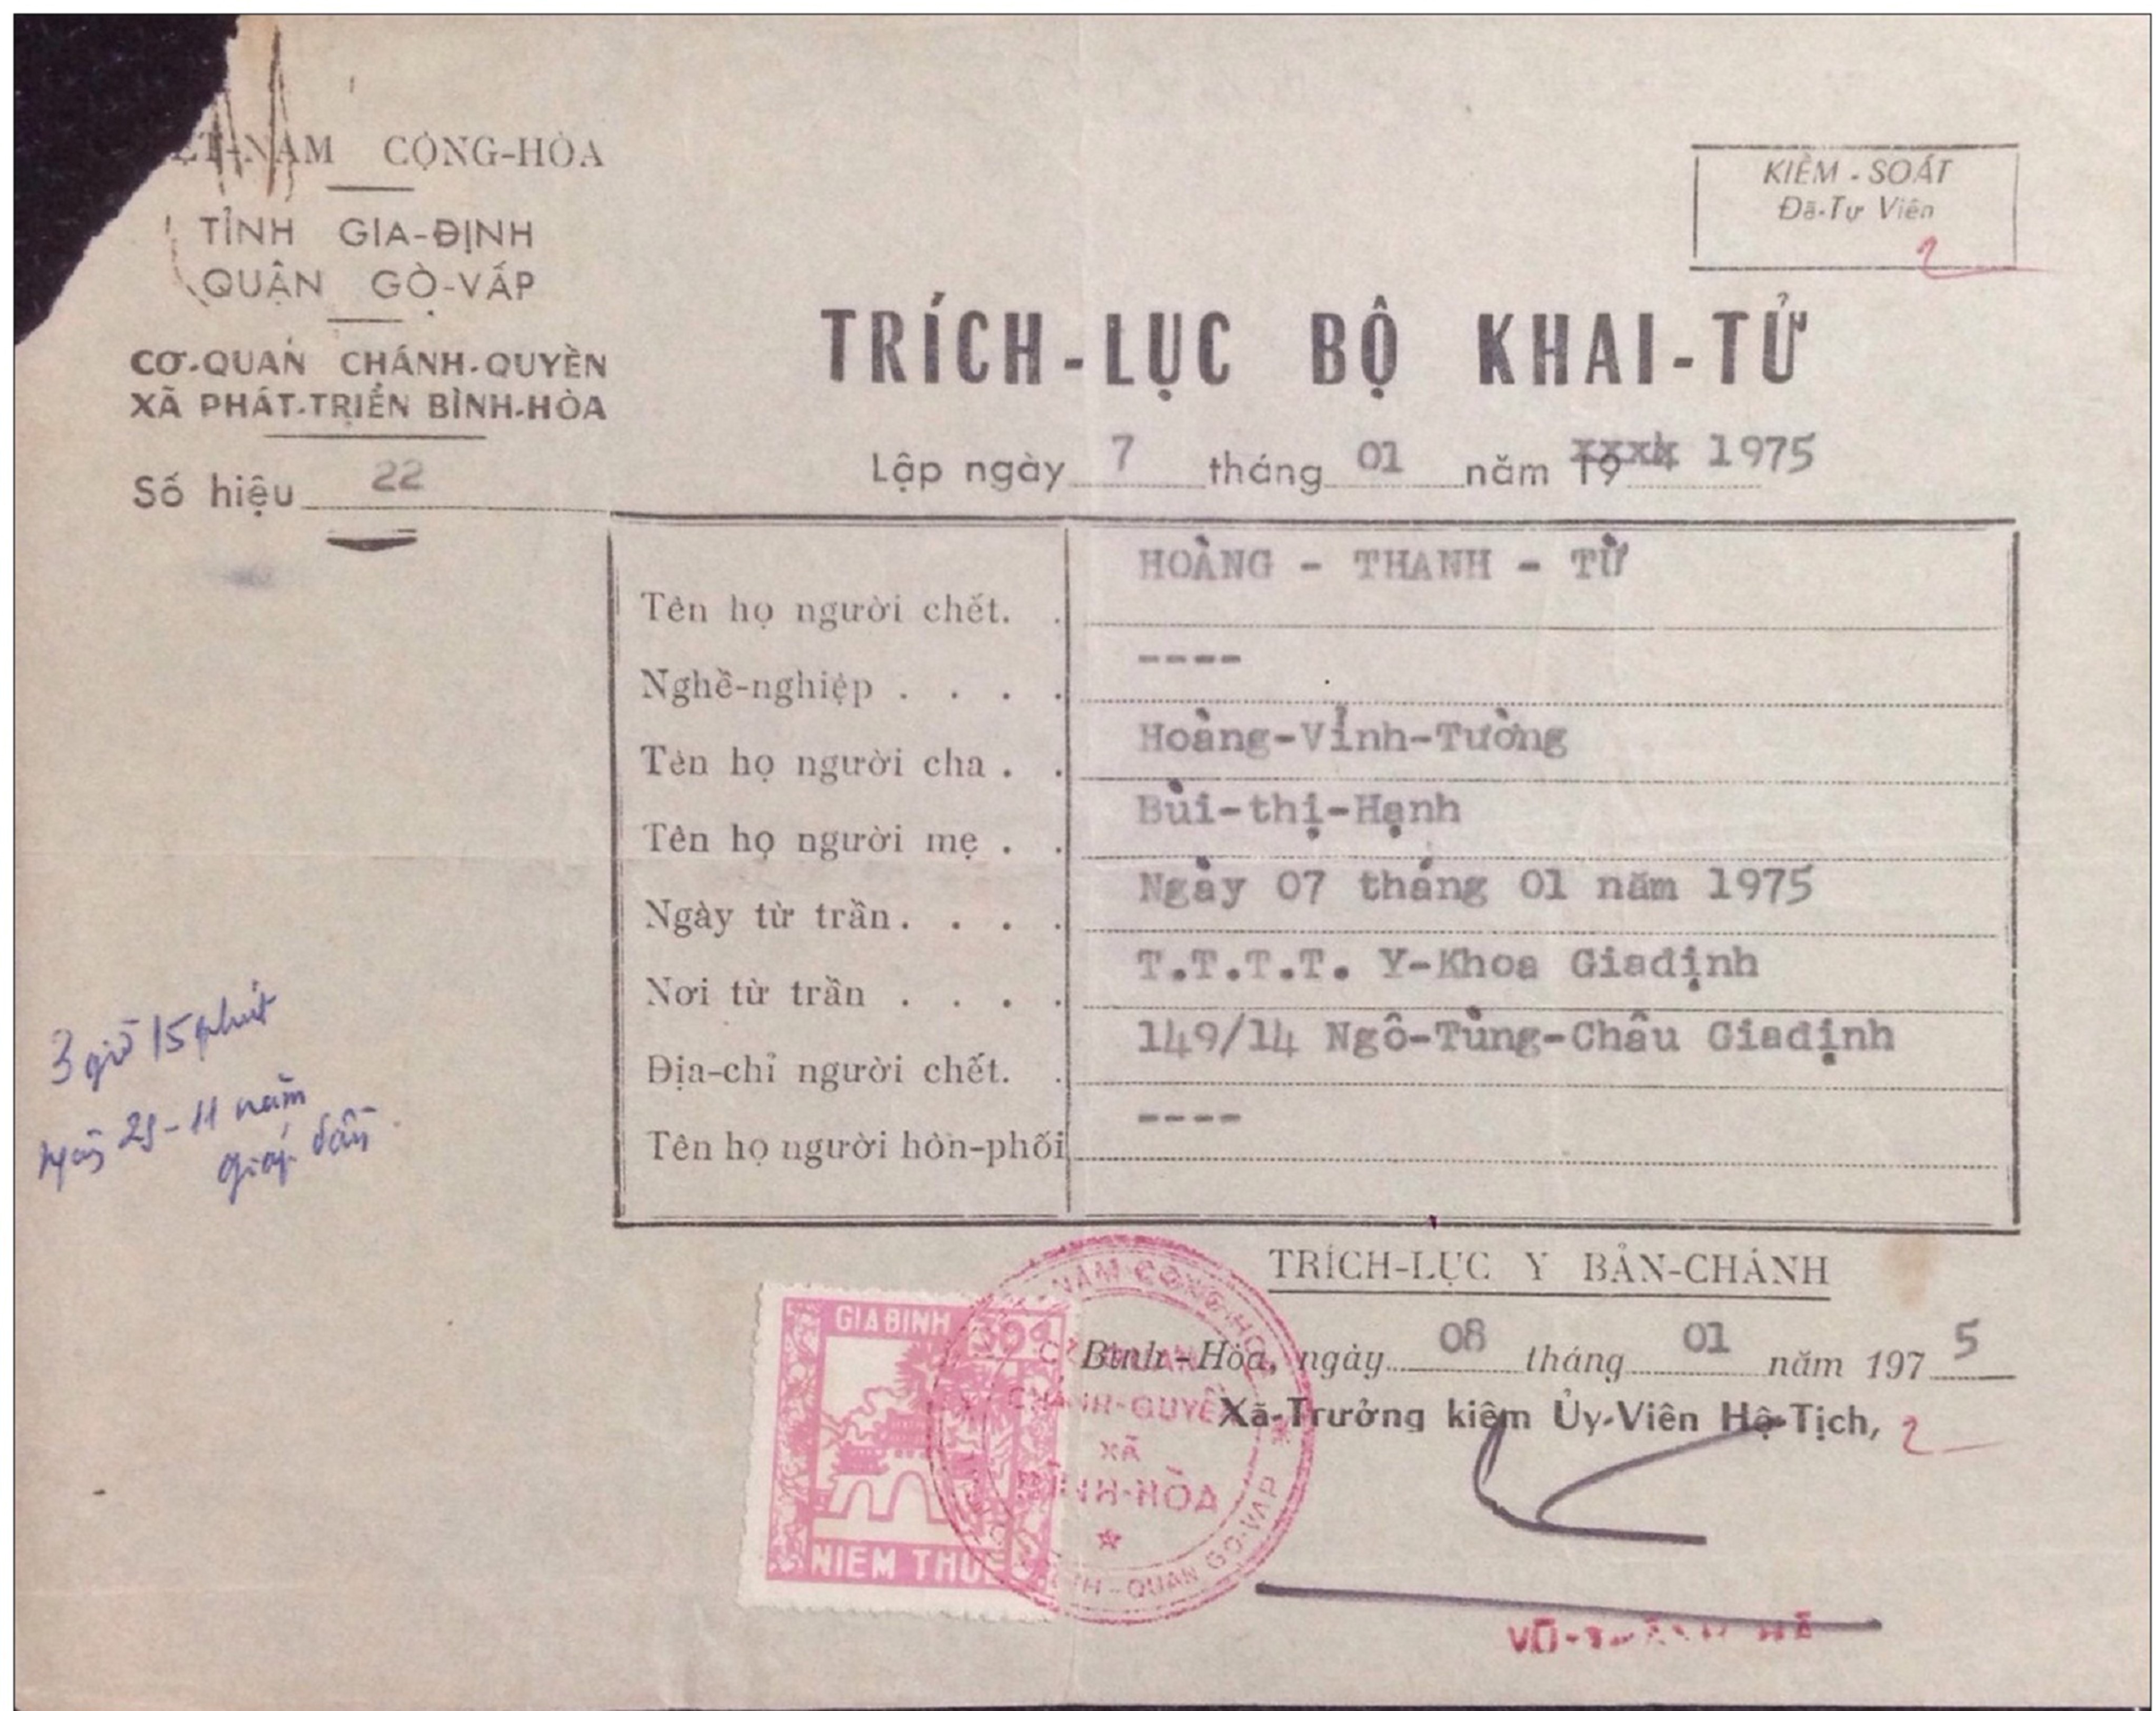 NAM CỘNG-HÒA
TỈNH GIA-ĐỊNH
QUẬN GÒ-VẤP
CƠ-QUAN CHÁNH-QUYỀN
XÃ PHÁT-TRIỂN BÌNH-HÒA
Số hiệu 22
KIỂM - SOÁT
Đã-Tự Viên
TRÍCH-LỤC BỘ KHAI-TỬ
Lập ngày 7 tháng 01 năm 19 1975
Tên họ người chết. . HOÀNG - THANH - TỪ
Nghề-nghiệp . . . . ----
Tên họ người cha . . Hoàng-Vỉnh-Tường
Tên họ người mẹ . . Bùi-thị-Hạnh
Ngày từ trần. . . . Ngày 07 tháng 01 năm 1975
Nơi từ trần . . . . T.T.T.T. Y-Khoa Giađịnh
Địa-chỉ người chết. . 149/14 Ngô-Tùng-Châu Giađịnh
Tên họ người hôn-phối ----
3 giờ 15 phút
ngày 25-11 năm
giáp dần
TRÍCH-LỤC Y BẢN-CHÁNH
Bình-Hòa, ngày 08 tháng 01 năm 197 5
Xã-Trưởng kiêm Ủy-Viên Hộ-Tịch,
GIA ĐỊNH
NIÊM THUẾ
NAM CỘNG-HÒA
CHÁNH-QUYỀN
XÃ
BÌNH-HÒA
QUẬN GÒ-VẤP
VŨ